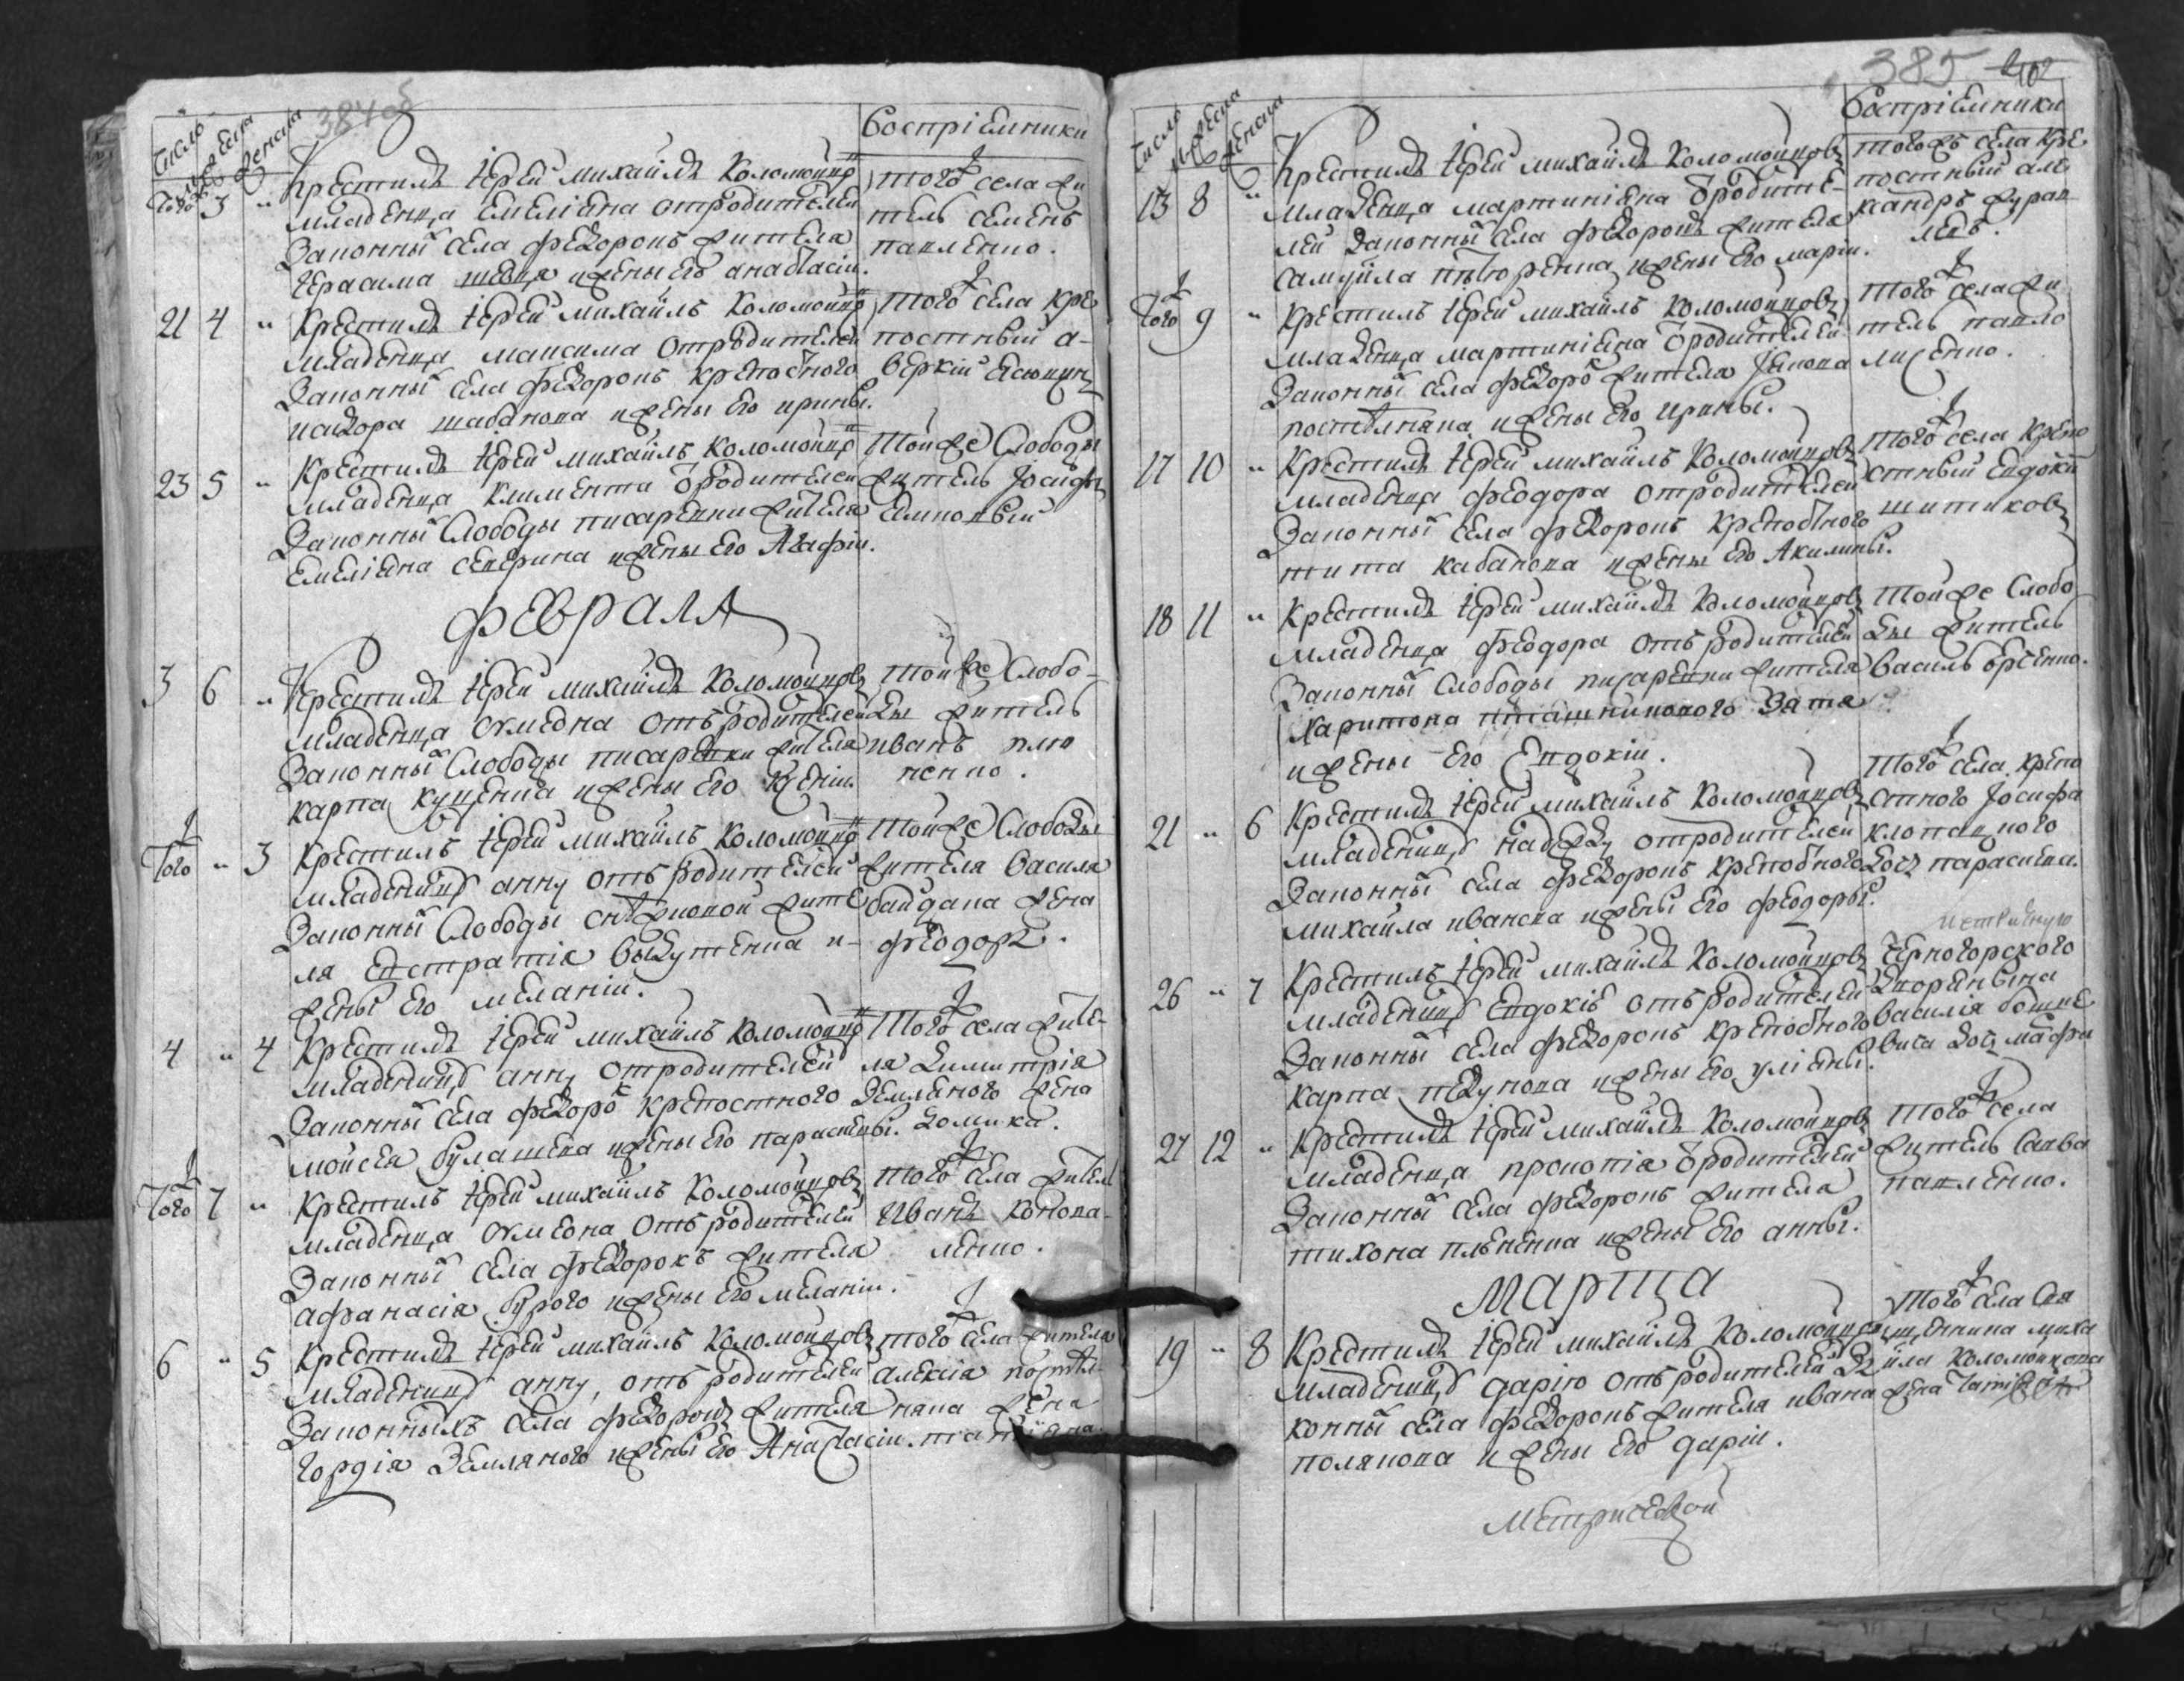 384 об
Число
мужеска
женска
Воспріемники
Того 3 " Крестилъ іерей михайлъ Коломойцо
младенца Емеліяна отродителей
Законны села федоровъ жителя
Герасима шевца ижены его анастасіи.
того села жи
тель семенъ
павленко.
21 4 " Крестилъ іерей михайлъ Коломойцо
младенца максима отродителей
Законны села федоровъ крепостного
исидора шабанова ижены его ирины.
того села кре
постный а-
веркій
23 5 " Крестилъ іерей михайлъ Коломойцо
младенца климента ородителей
Законны Слободы писаревки жителя
Емеліяна северина ижены его Агафіи.
тойже Слободы
житель Іосифъ
февраля
3 6 " Крестилъ іерей михайлъ Коломойцовъ
младенца симеона отъ родителей
Законны Слободы писаревки жителя
карпа куценка ижены его
тойже Слобо-
ды житель
иванъ
Того " 3 Крестилъ іерей михайлъ Коломойцо
младеницу анну отъ родителей
Законны Слободы снѣжковой жите
ля Евстратія ижены и-
жены его меланіи.
тойже Слободы
жителя Василя
байдана жена
феодора.
4 " 4 Крестилъ іерей михайлъ Коломойцо
младеницу анну отродителей
Законны села федоро крепостного
мойсея булашева ижены его параскевы.
того села жите-
ля димитрія
Земляного жена
домика.
Того 7 " Крестилъ іерей михайлъ Коломойцовъ
младенца симеона отъ родителей
Законны села федоровъ жителя
афанасія бурого ижены его меланіи.
того села жител
Иванъ конова-
ленко.
6 " 5 Крестилъ іерей михайлъ Коломойцовъ
младеницу анну, отъ родителей
Законныхъ села федоровъ жителя
гордія Земляного ижены его Анастасіи.
того села жителя
алексія постѣл-
няка жена
татіяна
385 402
Число
мужеска
женска
Воспріемники
13 8 " Крестилъ іерей михайлъ Коломойцовъ
младенца мартиніяна ородите-
лей Законны села федоровъ жителя
самуйла ижены его маріи.
тогожъ села кре
постный але
ксандръ журав
левъ.
Того 9 " Крестилъ іерей михайлъ Коломойцовъ
младенца мартиніяна ородителей
Законны села федоро жителя Іякова
постѣлняка ижены его ирины.
того села жи
тель павло
лисенко.
17 10 " Крестилъ іерей михайлъ Коломойцовъ
младенца феодора отродителей
Законны села федоровъ крепостного
тита кабанова ижены его Акилины.
того села крепо
стный Евдоким
шитиковъ
18 11 " Крестилъ іерей михайлъ Коломойцовъ
младенца феодора отъ родителей
Законны Слободы писаревки жителя
Харитона пташникового Зятя
ижены его Евдокіи.
тойже Слобо
ды житель
Василь
21 " 6 Крестилъ іерей михайлъ Коломойцовъ
младеницу надежду отродителей
Законны села федоровъ крепостного
михайла ивакова ижены его феодоры.
того села крепо
стного Іосифа
дочь параскева.
26 " 7 Крестилъ іерей михайлъ Коломойцовъ
младеницу Евдокію отъ родителей
Законны села федоровъ крепостного
карпа ижены его уліяны.
черногорского
дворянина
василія
вича дочь марфа
27 12 " Крестилъ іерей михайлъ Коломойцовъ
младенца прокопія ородителей
Законны села федоровъ жителя
тихона ижены его анны.
того села
житель Савва
павленко.
марта
19 " 8 Крестилъ іерей михайлъ Коломойцовъ
младеницу дарію отъ родителей За
конны села федоровъ жителя ивана
полякова ижены его даріи.
того села свя
щенника миха
йла Коломойцова
жена